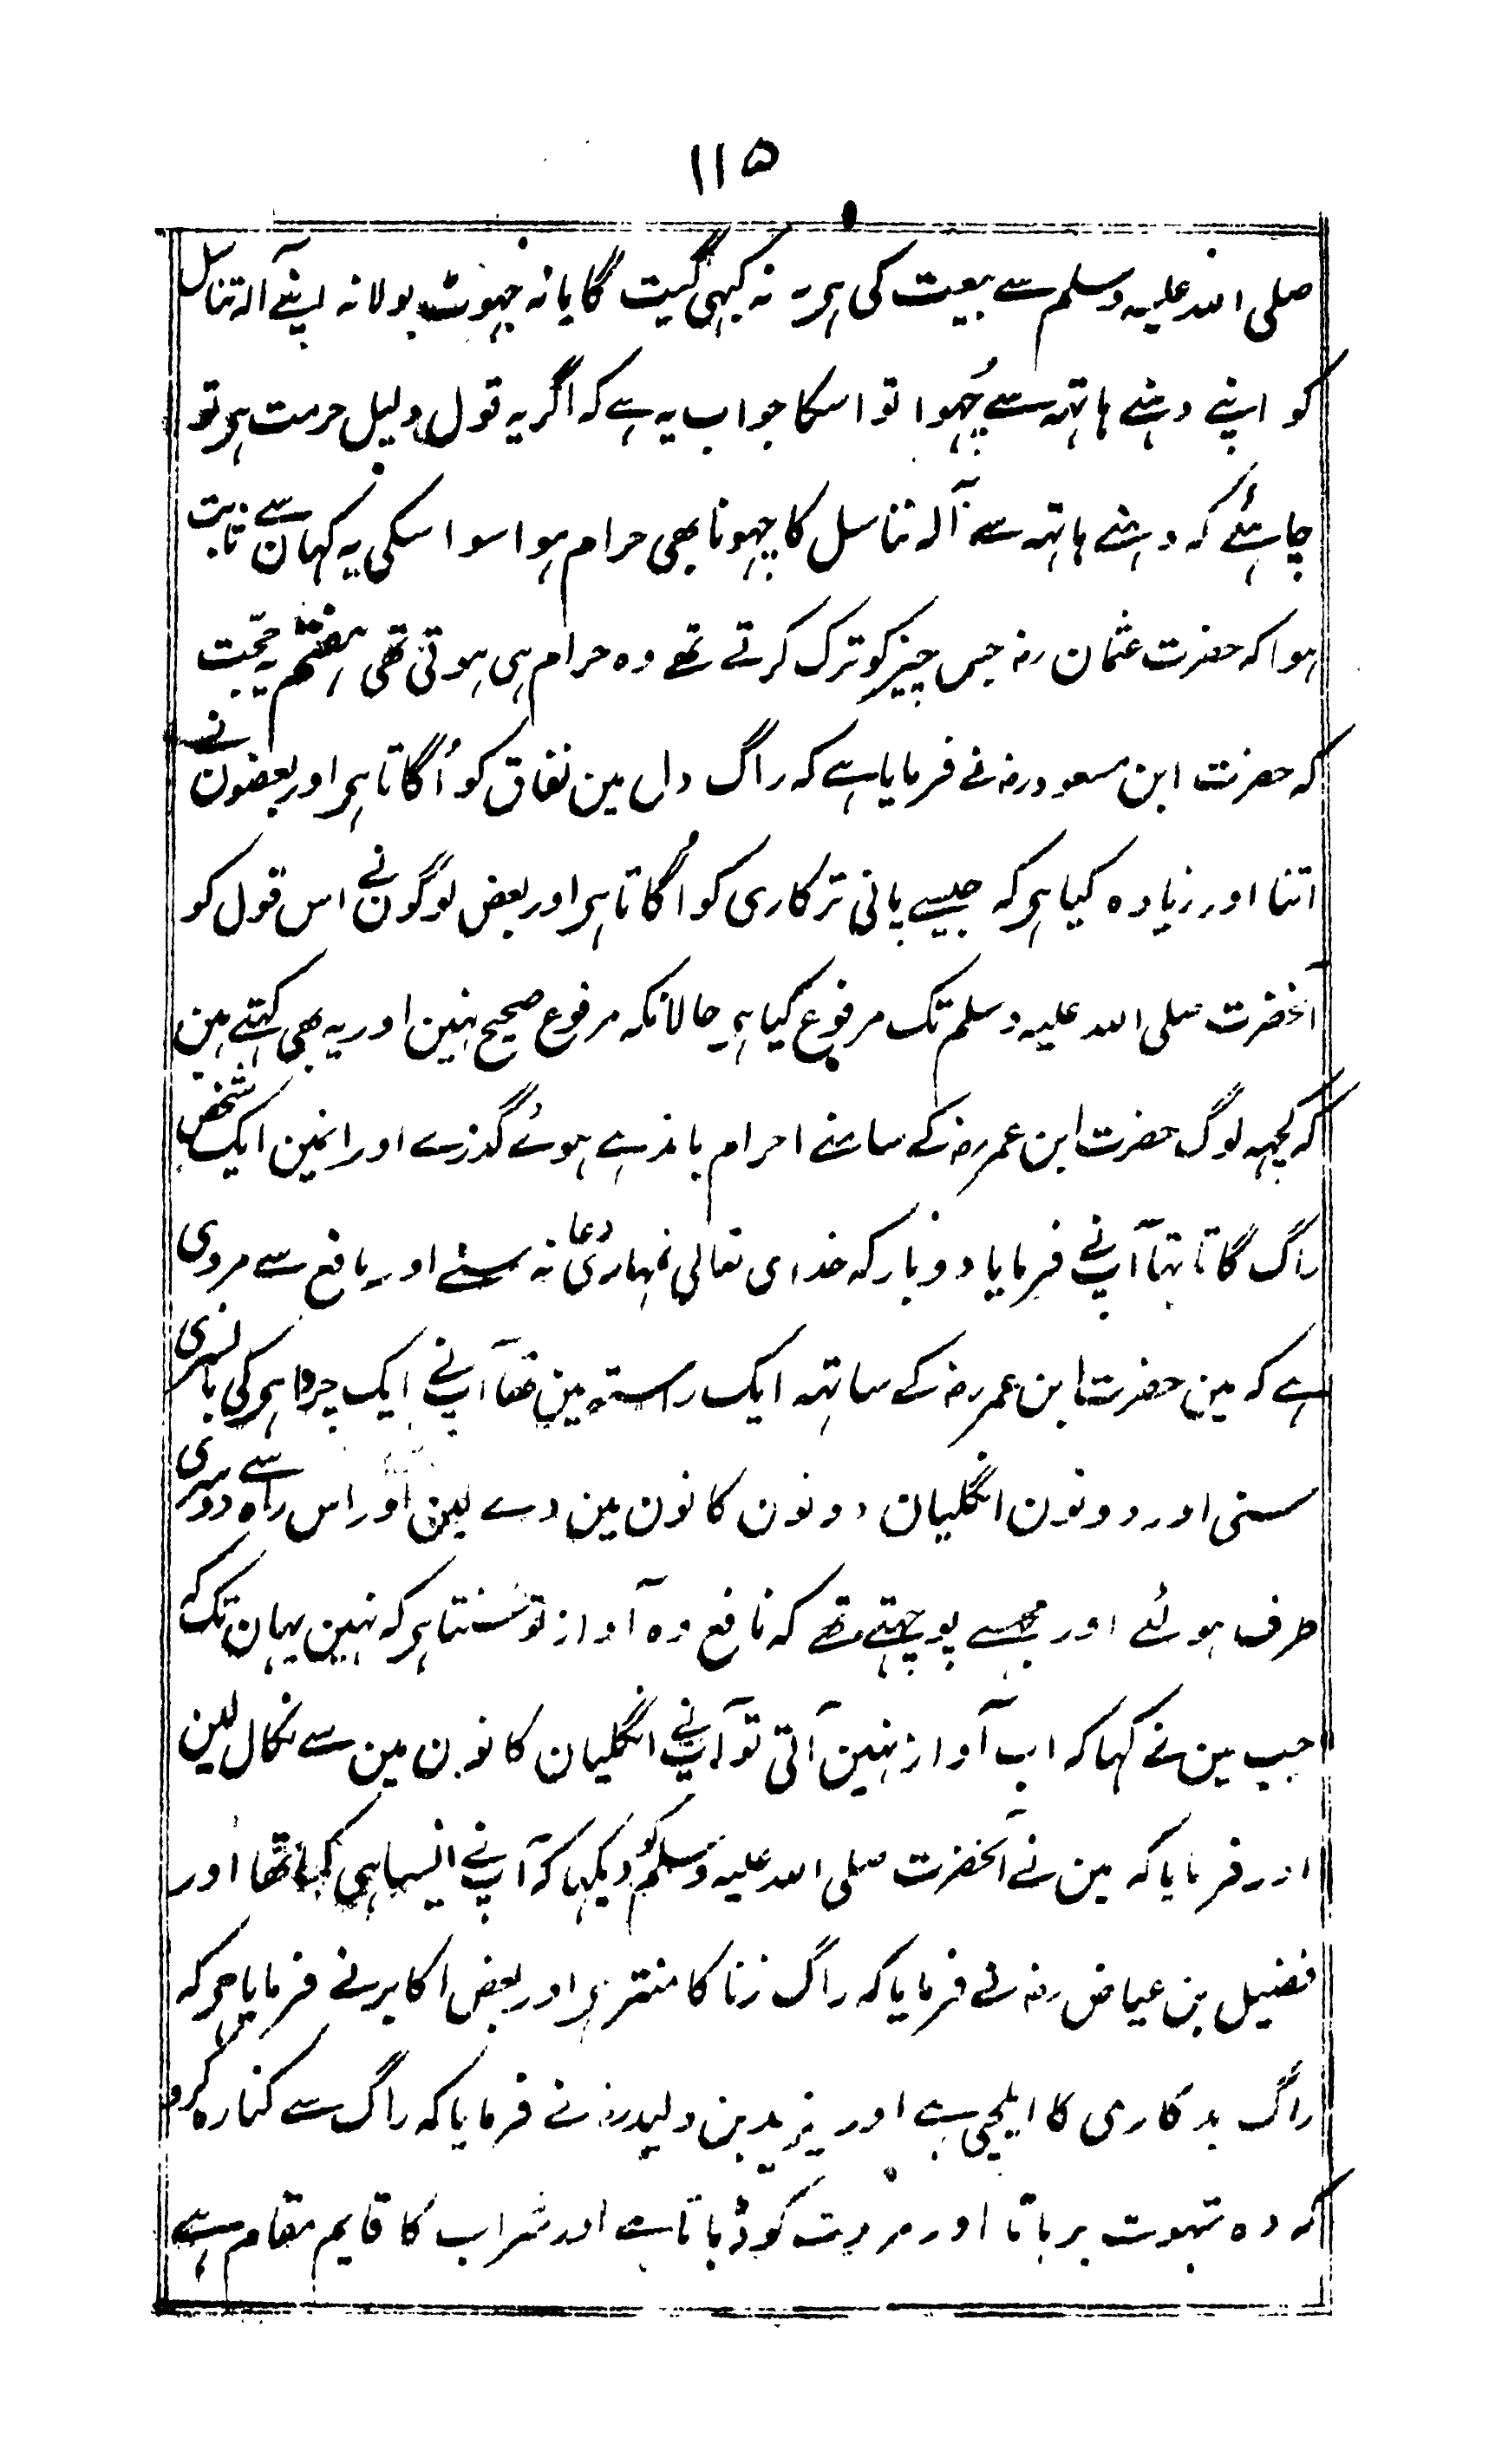 ۱۱۵
صلی اللہ علیہ وسلم سے بیعت کی ہی نہ کبہی گیت گایا نہ جہوٹ بولا نہ اپنے آلہ تناسل
کو اپنے دہنے ہاتہہ سے چُہوا تو اسکا جواب یہ ہے کہ اگر یہ قول دلیل حرمت ہی تو
چاہئے کہ دہنے ہاتہہ سے آلہ تناسل کا چہونا بھی حرام ہوا سوا اسکی یہ کہان سے ثابت
ہوا کہ حضرت عثمان رضہ جس چیز کو ترک کرتے تھے وہ حرام ہی ہوتی تھی ہفتم یہ حجّت
کہ حضرت ابن مسعود رضہ نے فرمایا ہے کہ راگ دل مین نفاق کو اُگاتا ہی اور بعضون نے
اتنا اور زیادہ کیا ہی کہ جیسے پانی ترکاری کو اُگاتا ہی اور بعض لوگون نے اس قول کو
آنخضرت صلی اللہ علیہ وسلم تک مرفوع کیا ہی حالانکہ مرفوع صحیح نہین اور یہ بھی کہتے ہین
کہ کچہہ لوگ حضرت ابن عمر رضہ کے سامنے احرام باندہے ہوئے گذرے اور انمین ایک شخص
راگ گاتا تہا آپنے فرمایا دو بار کہ خدای تعالی تمہاری دعا نہ سنے اور نافع سے مروی
ہے کہ مین حضرت ابن عمر رضہ کے ساتہہ ایک راستہ مین تھا آپنے ایک چرواہی کی بانسری
سنی اور دونون انگلیان دونون کانون مین دے لین اور اس راہ سے دوسری
طرف ہوئے اور مجہسے پوچہتے تھے کہ نافع وہ آواز تو سنتا ہی کہ نہین یہان تک کہ
جب مین نے کہا کہ اب آواز نہین آتی تو آپنے انگلیان کانون مین سے نکال لین
اور فرمایا کہ مین نے آنحضرت صلی اللہ علیہ وسلم کو دیکہا کہ آپنے ایسا ہی کیا تھا اور
فضیل بن عیاض رضہ نے فرمایا کہ راگ زنا کا منتر ہی اور بعض اکابر نے فرمایا ہی کہ
راگ بدکاری کا ایلچی ہے اور یزید بن ولید رضہ نے فرمایا کہ راگ سے کنارہ کرو
کہ وہ شہوت برہاتا اور مروت کو ڈہاتا ہے اور شراب کا قایم مقام ہے